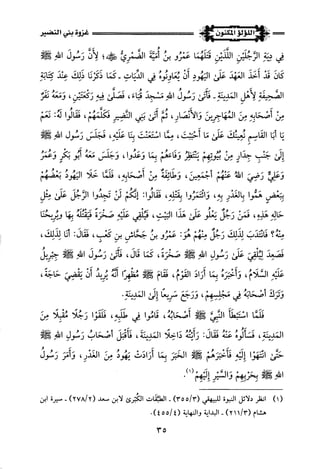 اللؤلؤ المكنون
غزوة بني النضير
فِي دِيَةِ الرَّجُلَيْنِ اللَّذَيْنِ قَتَلَهُمَا عَمْرُو بنُ أُمَيَّةَ الضَّمْرِيُّ؛ لِأَنَّ رَسُولَ اللهِ ﷺ
كَانَ قَدْ أَخَذَ العَهْدَ عَلَى اليَهُودِ أَنْ يُعَاوِنُوهُ فِي الدِّيَاتِ - كَمَا ذَكَرْنَا ذلِكَ عِنْدَ كِتَابَةِ
الصَّحِيفَةِ لِأَهْلِ المَدِينَةِ - فَأَتَى رَسُولُ اللهِ ﷺ مَسْجِدَ قُبَاءَ، فَصَلَّى فِيهِ رَكْعَتَيْنِ، وَمَعَهُ نَفَرٌ
مِنْ أَصْحَابِهِ مِنَ المُهَاجِرِينَ وَالأَنْصَارِ، ثُمَّ أَتَى بَنِي النَّضِيرِ فَكَلَّمَهُمْ، فَقَالُوا لَهُ: نَعَمْ
يَا أَبَا القَاسِمِ نُعِينُكَ عَلَى مَا أَحْبَبْتَ، مِمَّا اسْتَعَنْتَ بِنَا عَلَيْهِ، فَجَلَسَ رَسُولُ اللهِ ﷺ
إِلَى جَنْبِ جِدَارٍ مِنْ بُيُوتِهِمْ يَنْتَظِرُ وَفَاءَهُمْ بِمَا وَعَدُوا، وَجَلَسَ مَعَهُ أَبُو بَكْرٍ وَعُمَرُ
وَعَلِيٌّ رَضِيَ اللهُ عَنْهُمْ أَجْمَعِينَ، وَطَائِفَةٌ مِنْ أَصْحَابِهِ، فَلَمَّا خَلَا اليَهُودُ بَعْضُهُمْ
بِبَعْضٍ هَمُّوا بِالغَدْرِ بِهِ، وَائْتَمَرُوا بِقَتْلِهِ، فَقَالُوا: إِنَّكُمْ لَنْ تَجِدُوا الرَّجُلَ عَلَى مِثْلِ
حَالِهِ هَذِهِ، فَمَنْ رَجُلٌ يَعْلُو عَلَى هَذَا البَيْتِ، فَيُلْقِي عَلَيْهِ صَخْرَةً فَيَقْتُلَهُ بِهَا وَيُرِيحُنَا
مِنْهُ؟ فَانْتَدَبَ لِذلِكَ رَجُلٌ مِنْهُمْ هُوَ: عَمْرُو بنُ جَحَّاشِ بنِ كَعْبٍ، فَقَالَ: أَنَا لِذلِكَ،
فَصَعِدَ لِيُلْقِيَ عَلَى رَسُولِ اللهِ ﷺ صَخْرَةً، كَمَا قَالَ، فَأَتَى رَسُولَ اللهِ ﷺ جِبْرِيلُ
عَلَيْهِ السَّلَامُ، وَأَخْبَرَهُ بِمَا أَرَادَ القَوْمُ، فَقَامَ ﷺ مُظْهِرًا أَنَّهُ يُرِيدُ أَنْ يَقْضِيَ حَاجَةً،
وَتَرَكَ أَصْحَابَهُ فِي مَجْلِسِهِمْ، وَرَجَعَ سَرِيعًا إِلَى المَدِينَةِ.
فَلَمَّا اسْتَبْطَأَ النَّبِيَّ ﷺ أَصْحَابُهُ، قَامُوا فِي طَلَبِهِ، فَلَقُوا رَجُلًا مُقْبِلًا مِنَ
المَدِينَةِ، فَسَأَلُوهُ عَنْهُ فَقَالَ: رَأَيْتُهُ دَاخِلًا المَدِينَةَ، فَأَقْبَلَ أَصْحَابُ رَسُولِ اللهِ ﷺ
حَتَّى انْتَهَوْا إِلَيْهِ فَأَخْبَرَهُمْ ﷺ الخَبَرَ بِمَا أَرَادَتْ يَهُودُ مِنَ الغَدْرِ، وَأَمَرَ رَسُولُ
اللهِ ﷺ بِحَرْبِهِمْ وَالسَّيْرِ إِلَيْهِمْ(١).
(١) انظر دلائل النبوة للبيهقي (٣/٣٥٥) - الطَّبَقَات الكُبْرى لابن سعد (٢/٢٧٨) - سيرة ابن
هشام (٣/٢١١) - البداية والنهاية (٤/٤٥٥).
٣٥